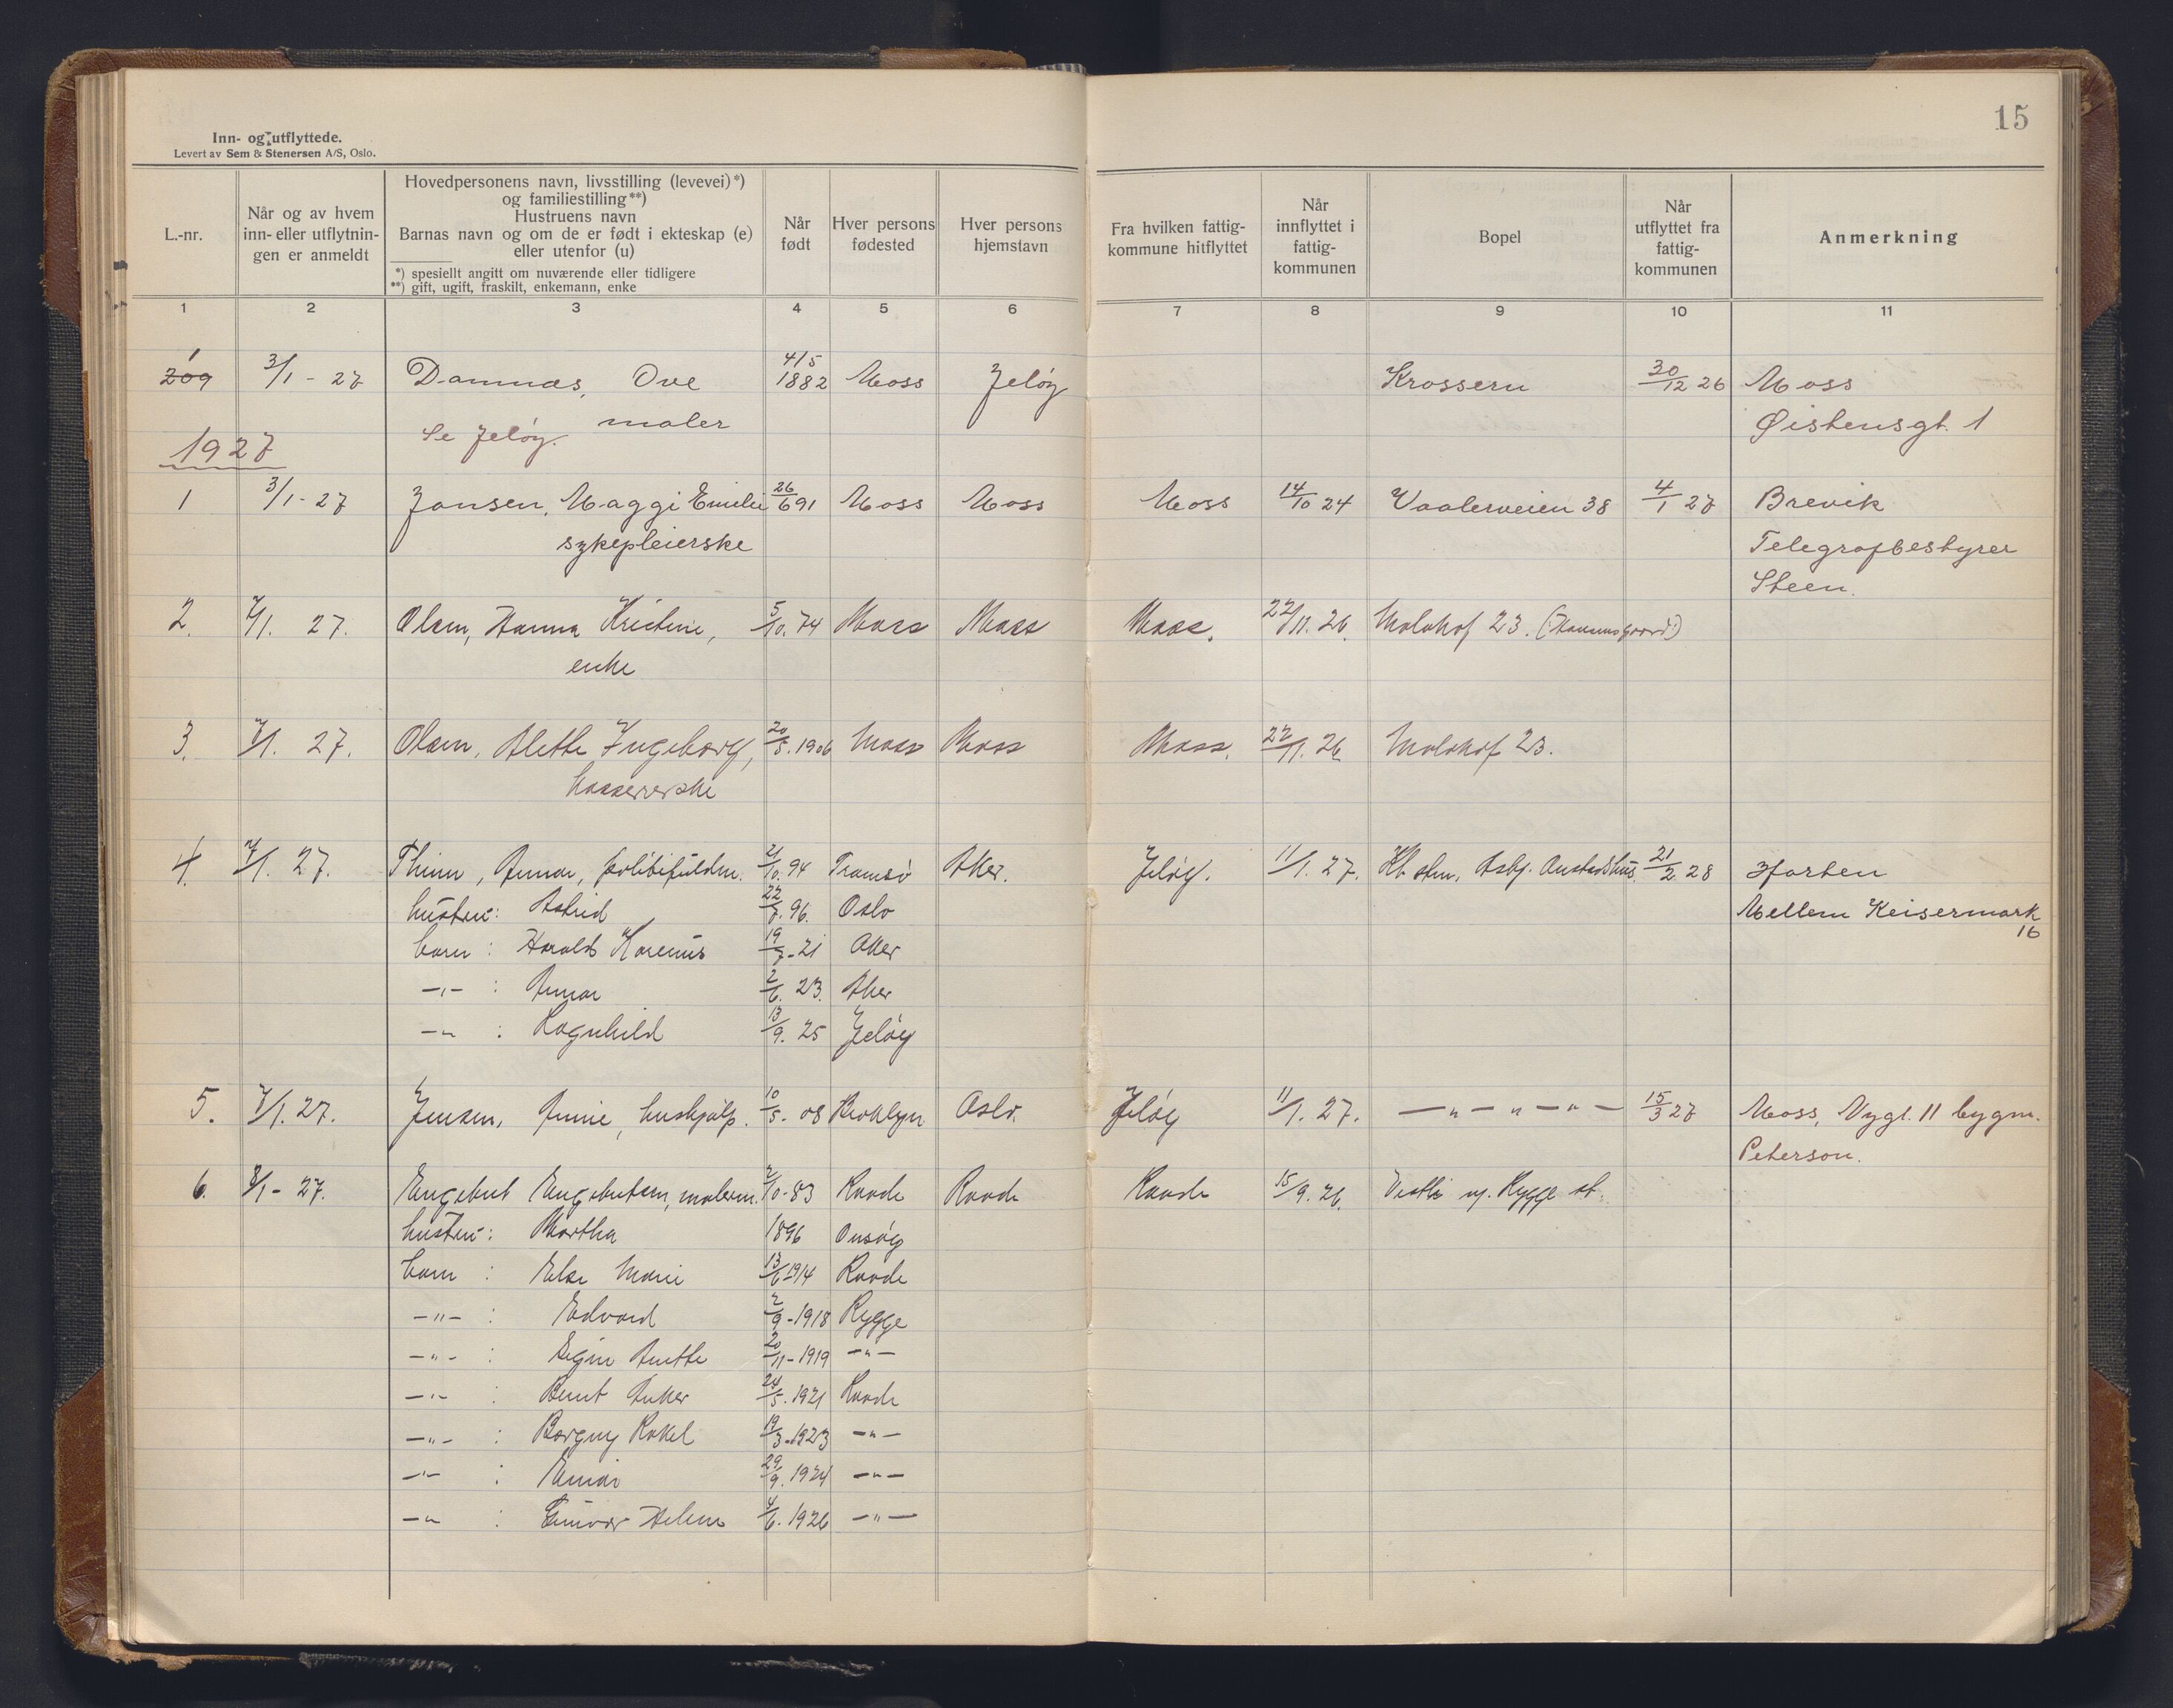 15
Inn- og utflyttede.
Levert av Sem & Stenersen A/S, Oslo.
L.-nr.
Når og av hvem
inn- eller utflytnin-
gen er anmeldt
Hovedpersonens navn, livsstilling (levevei)*)
og familiestilling**)
Hustruens navn
Barnas navn og om de er født i ekteskap (e)
eller utenfor (u)
*) spesielt angitt om nuværende eller tidligere
**) gift, ugift, fraskilt, enkemann, enke
Når
født
Hver persons
fødested
Hver persons
hjemstavn
Fra hvilken fattig-
kommune hitflyttet
Når
innflyttet i
fattig-
kommunen
Bopel
Når
utflyttet fra
fattig-
kommunen
Anmerkning
1 2 3 4 5 6 7 8 9 10 11
1
209 3/1 - 27 Damnæs, Ove 4/5 1882 Moss Jeløy Krossern 30/12 26 Moss
Se Jeløy. maler Øistensgt. 1
1927
1 3/1 - 27 Jansen, Maggi Emilie 26/6 91 Moss Moss Moss 14/10 24 Vaalerveien 38 4/1 27 Brevik
sykepleierske Telegrafbestyrer
Steen.
2. 7/1. 27. Olsen, Hanna Kristine, 5/10. 74 Moss Moss Moss. 22/11. 26. Molohof 23.
enke
3. 7/1. 27. Olsen, Alette Ingeborg, 20/5. 1906 Moss Moss Moss. 22/11. 26 Molohof 23.
kassererske
4. 7/1. 27. Thinn, Annar, politifuldm. 21/10. 94 Tromsö Aker. Jeløy. 11/1. 27. 21/2 28 Horten
hustru: Astrid 22/7. 96. Oslo Mellem Keisermark
16
barn : Harald 19/7-21 Aker
-"- : Annar 2/6. 23. Aker
-"- : Ragnhild 13/9. 25 Jeløy
5. 7/1. 27. Jensen, Annie, hushjælp. 10/5. 08 Broklyn Oslo. Jeløy 11/1. 27. -"-"-"- 15/3 27 Moss, Nygt. 11 bygm.
Peterson.
6. 8/1 - 27. Engebret Engebretsen, malerm. 2/10-83 Raade Raade Raade 15/9. 26. Rygge st.
hustru: Martha 1896 Onsøy
barn : Else Marie 13/6 1914 Raade
-"- : Edvard 2/9-1918 Rygge
-"- : Signe Anette 20/11-1919 -"-
-"- : Bernt Anker 24/5. 1921 Raade
-"- : Borgny Rakel 19/3-1923 -"-
-"- : Einar 29/9. 1924 -"-
-"- : Gunvor Helene 4/6. 1926 -"-